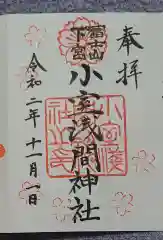 奉拝
富士山
下宮
小室浅間神社
令和二年十一月一日